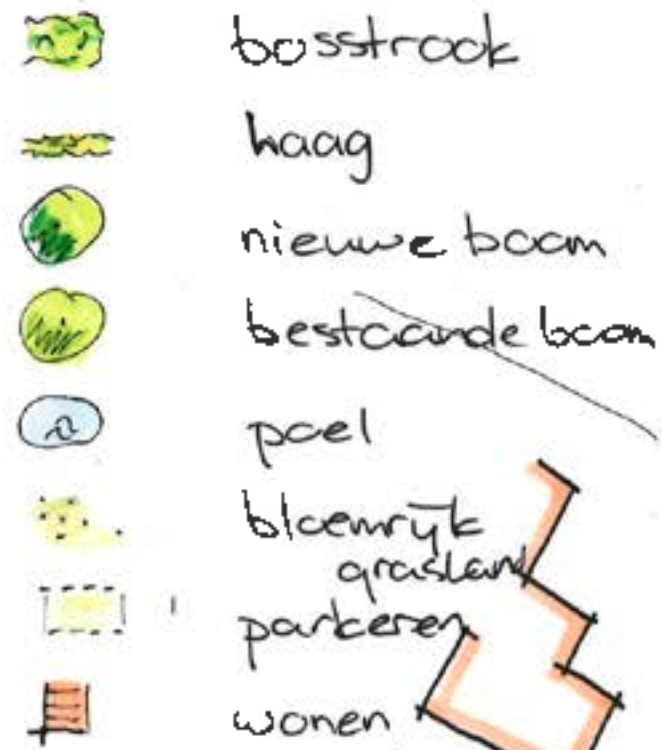 bosstrook
haag
nieuwe boom
bestaande boom
poel
bloemrijk
grasland
parkeren
wonen